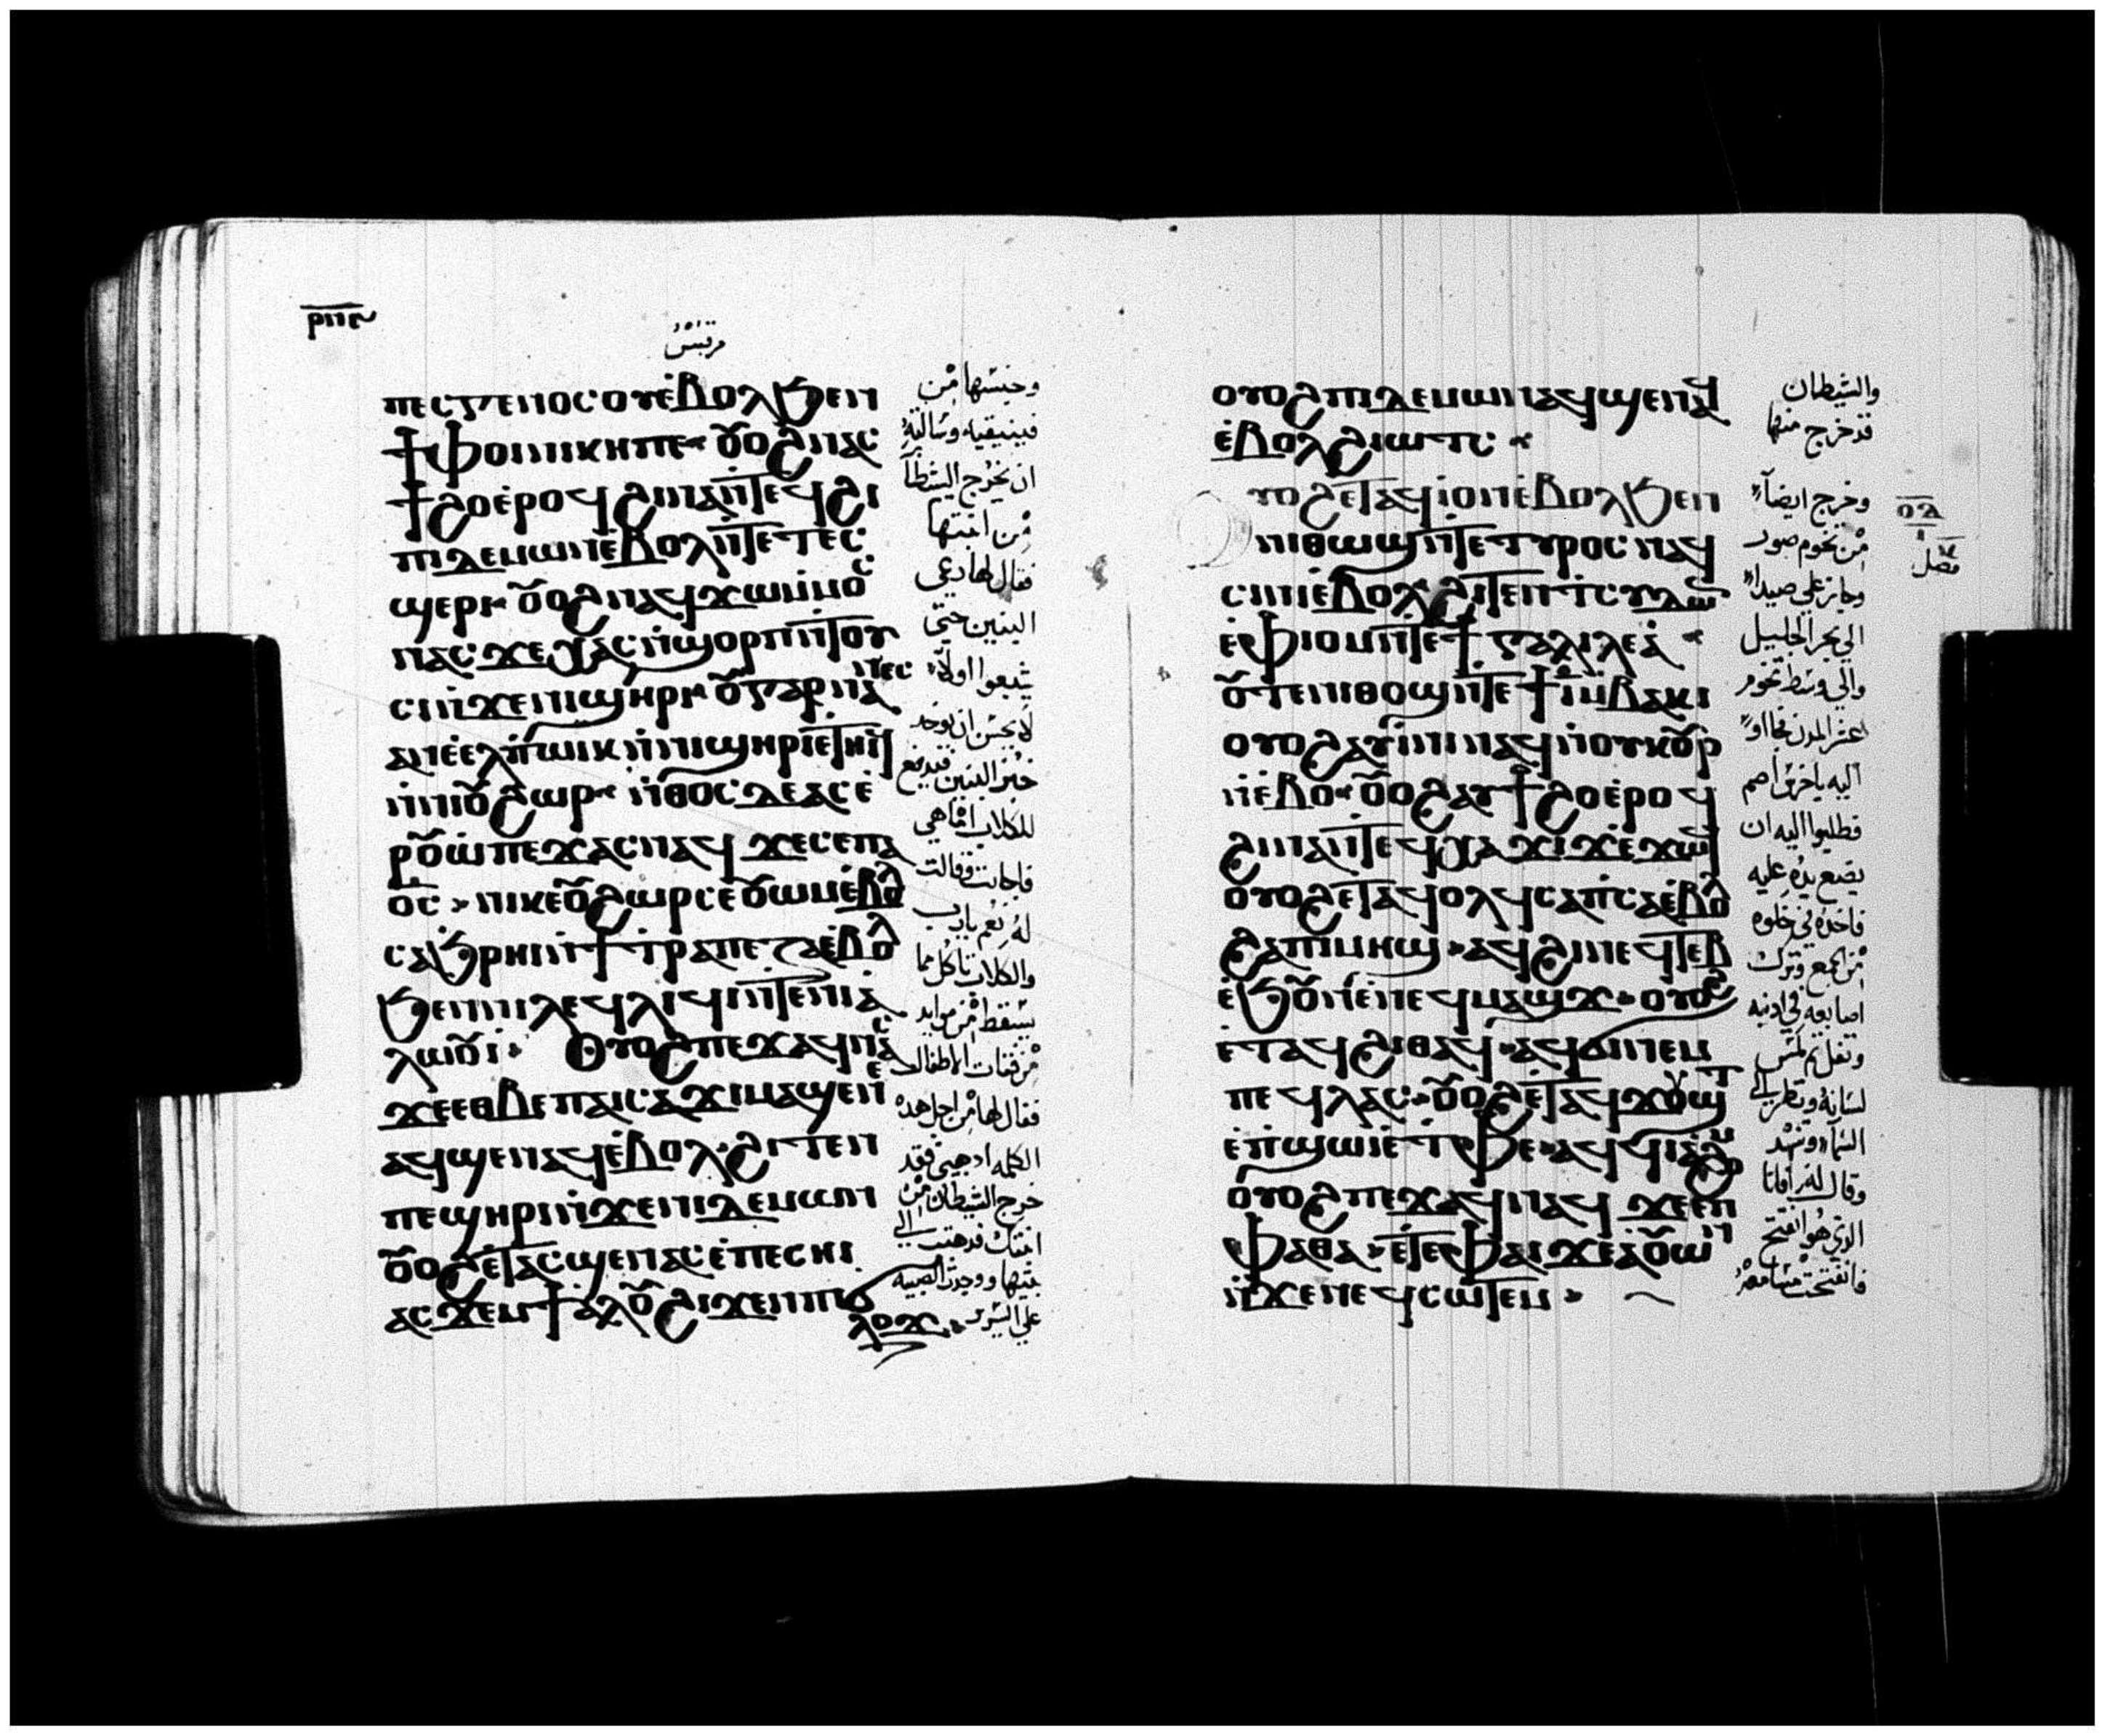 ⲣⲡⲋ
مرقس
ⲡⲉⲥⲅⲉⲛⲟⲥ ⲟⲩⲉ̀ⲃⲟⲗ ϧⲉⲛ
ϯⲫⲟⲓⲛⲓⲕⲏ ⲡⲉ ⲟⲩⲟϩ ⲛⲁⲥ
ϯϩⲟ ⲉ̀ⲣⲟϥ ϩⲓⲛⲁ ⲛ̀ⲧⲉϥϩⲓ
ⲡⲓⲇⲉⲙⲱⲛ ⲉ̀ⲃⲟⲗ ⲛ̀ⲧⲉ ⲧⲉⲥ
ϣⲉⲣⲓ ⲟⲩⲟϩ ⲛⲁϥϫⲱ ⲙ̀ⲙⲟⲥ
ⲛⲁⲥ ϫⲉ ⲭⲁⲥ ⲛ̀ϣⲟⲣⲡ ⲛ̀ⲧⲟⲩ
ⲥⲓ ⲛ̀ϫⲉ ⲛⲓϣⲏⲣⲓ ⲟⲩ ⲅⲁⲣ ⲛⲁⲛⲉⲥ
ⲁⲛ ⲉ̀ⲉⲗ ⲡ̀ⲱⲓⲕ ⲛ̀ⲛⲓϣⲏⲣⲓ ⲉ̀ⲧⲏⲓϥ
ⲛ̀ⲛⲓⲟⲩϩⲱⲣ ⲛ̀ⲑⲟⲥ ⲇⲉ ⲁⲥⲉ̀
ⲣⲟⲩⲱ̀ ⲡⲉϫⲁⲥ ⲛⲁϥ ϫⲉ ⲥⲉ ⲡⲁ
ⲟ̅ⲥ̅ ⲛⲓⲕⲉⲟⲩϩⲱⲣ ⲥⲉⲟⲩⲱⲙ ⲉ̀ⲃⲟⲗ
ⲥⲁϧⲣⲏⲓ ⲛ̀ϯⲧⲣⲁⲡⲉⲍⲁ ⲉ̀ⲃⲟⲗ
ϧⲉⲛ ⲛⲓⲗⲉϥⲗⲓϥⲓ ⲛ̀ⲧⲉ ⲛⲓⲁ̀
ⲗⲱⲟⲩⲓ̀ ⲟⲩⲟϩ ⲡⲉϫⲁϥ ⲛⲁⲥ
ϫⲉ ⲉⲑⲃⲉ ⲡⲁⲓⲥⲁϫⲓ ⲙⲁϣⲉ ⲛⲉ
ⲁϥϣⲉⲛⲁϥ ⲉ̀ⲃⲟⲗ ϩⲓⲧⲉⲛ
ⲡⲉϣⲏⲣⲓ ⲛ̀ϫⲉ ⲡⲓⲇⲉⲙⲱⲛ
ⲟⲩⲟϩ ⲉ̀ⲧⲁⲥϣⲉⲛⲁⲥ ⲉ̀ⲡⲉⲥⲏⲓ
ⲁⲥϫⲉⲙ ϯⲁⲗⲟⲩ ϩⲓϫⲉⲛ ⲡⲓϭ
ⲗⲟϫ
وجنسها من
فينيقيه وسالته
ان يخرج الشيطان
من ابنتها
فقال لها دعي
البنين حتى
يشبعوا اولاً
لا يحسن ان يوخد
خبز البنين فيدفع
للكلاب اما هي
فاجابت وقالت
له نعم يارب
والكلاب تاكل مما
يسقط من موايد
من فتات الاطفال
فقال لها من اجل هده
الكلمه ادهبي فقد
خرج الشيطان من
ابنتك فدهبت الي
بيتها ووجدت الصبيه
على السرير
ⲟⲩⲟϩ ⲡⲓⲇⲉⲙⲱⲛ ⲁϥϣⲉⲛⲁϥ
ⲉ̀ⲃⲟⲗ ϩⲓⲱⲧⲥ
ⲩⲟϩ ⲉⲧⲁϥⲓ̀ ⲟⲛ ⲉ̀ⲃⲟⲗ ϧⲉⲛ
ⲛⲓⲑⲱϣ ⲛ̀ⲧⲉ ⲧⲩⲣⲟⲥ ⲛⲁϥ
ⲥⲓⲛⲓ ⲉ̀ⲃⲟⲗ ϩⲓⲧⲉⲛ ⲧⲥⲩⲇⲱⲛ
ⲉ̀ⲫⲓⲟⲙ ⲛ̀ⲧⲉ ϯⲅⲁⲗⲓⲗⲉⲁ̀
ⲟⲩⲧⲉ ⲛⲓⲑⲟϣ ⲛ̀ⲧⲉ ϯⲓ̅ ⲙ̀ⲃⲁⲕⲓ
ⲟⲩⲟϩ ⲁⲩⲓ̀ⲛⲓ ⲛⲁϥ ⲛ̀ⲟⲩⲕⲟⲩⲣ
ⲛ̀ⲉⲃⲟ ⲟⲩⲟϩ ⲁⲩϯϩⲟ ⲉ̀ⲣⲟϥ
ϩⲓⲛⲁ ⲛ̀ⲧⲉϥⲭⲁ ϫⲓϫ ⲉ̀ϫⲱϥ
ⲟⲩⲟϩ ⲉ̀ⲧⲁϥⲟⲗϥ ⲥⲁⲡ̀ⲥⲁ ⲉ̀ⲃⲟⲗ
ϩⲁ ⲡⲓⲙⲏϣ ⲁϥϩⲓ ⲛⲉϥⲧⲏⲃ
ⲉ̀ϧⲟⲩⲛ ⲉ̀ⲛⲉϥⲙⲁϣϫ ⲟⲩⲟϩ
ⲉ̀ⲧⲁϥϩⲓⲑⲁϥ ⲁϥϭⲓ ⲛⲉⲙ
ⲡⲉϥⲗⲁⲥ ⲟⲩⲟϩ ⲉ̀ⲧⲁϥϫⲟⲩϣⲧ
ⲉ̀ⲡ̀ϣⲱⲓ ⲉ̀ⲧⲫⲉ ⲁϥϥⲓⲁϩⲟⲙ
ⲟⲩⲟϩ ⲡⲉϫⲁϥ ⲛⲁϥ ϫⲉ ⲉⲡ
ⲫⲁⲑⲁ ⲉ̀ⲧⲉ ⲫⲁⲓ ϫⲉ ⲁ̀ⲟⲩⲱⲛ
ⲛ̀ϫⲉ ⲛⲉϥⲥⲱⲧⲉⲙ
والشيطان
قد خرج منها
وخرج ايضاً
من تخوم صور
وجاز علي صيدا
الي بحر الجليل
والي وسط تخوم
العشر المدن فجاوا
اليه باخرس اصم
فطلبوا اليه ان
يضع يده عليه
فاخده في خلوه
من الجمع وترك
اصابعه في ادنيه
وتفل ثم لمس
لسانه ونظر الي
السماء وتنهد
وقال له افاتا
الدي هو انفتح
فانفتحت مسامعه
ⲟⲇ
فصل